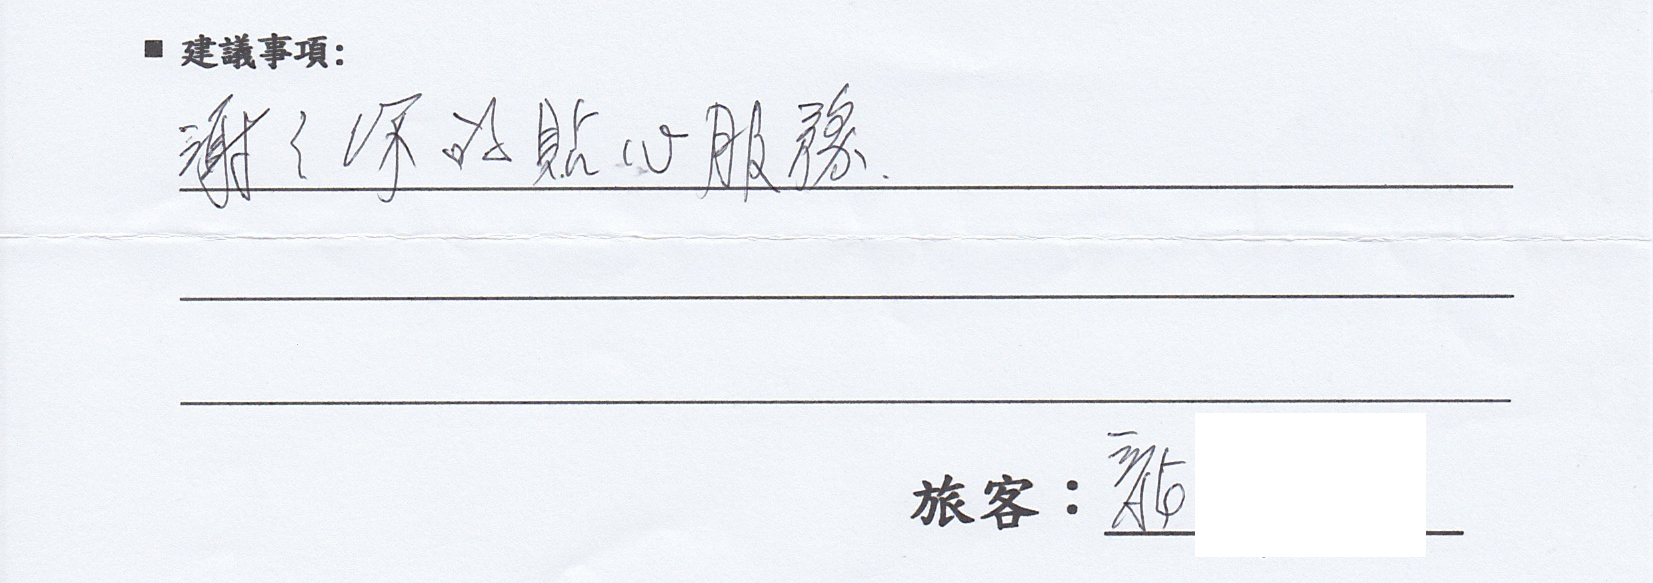 ■ 建議事項:
謝々你的貼心服務.
旅客：龍